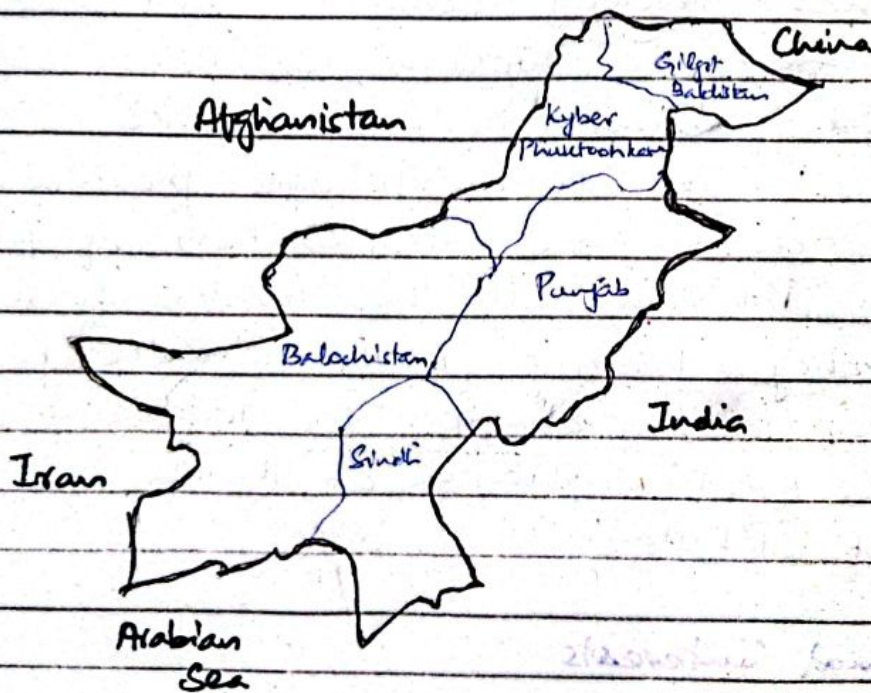 China
Gilgit
Baldistan
Afghanistan
Kyber
Phuktoonkaw
Punjab
Balochistan
India
Sindh
Iran
Arabian
Sea